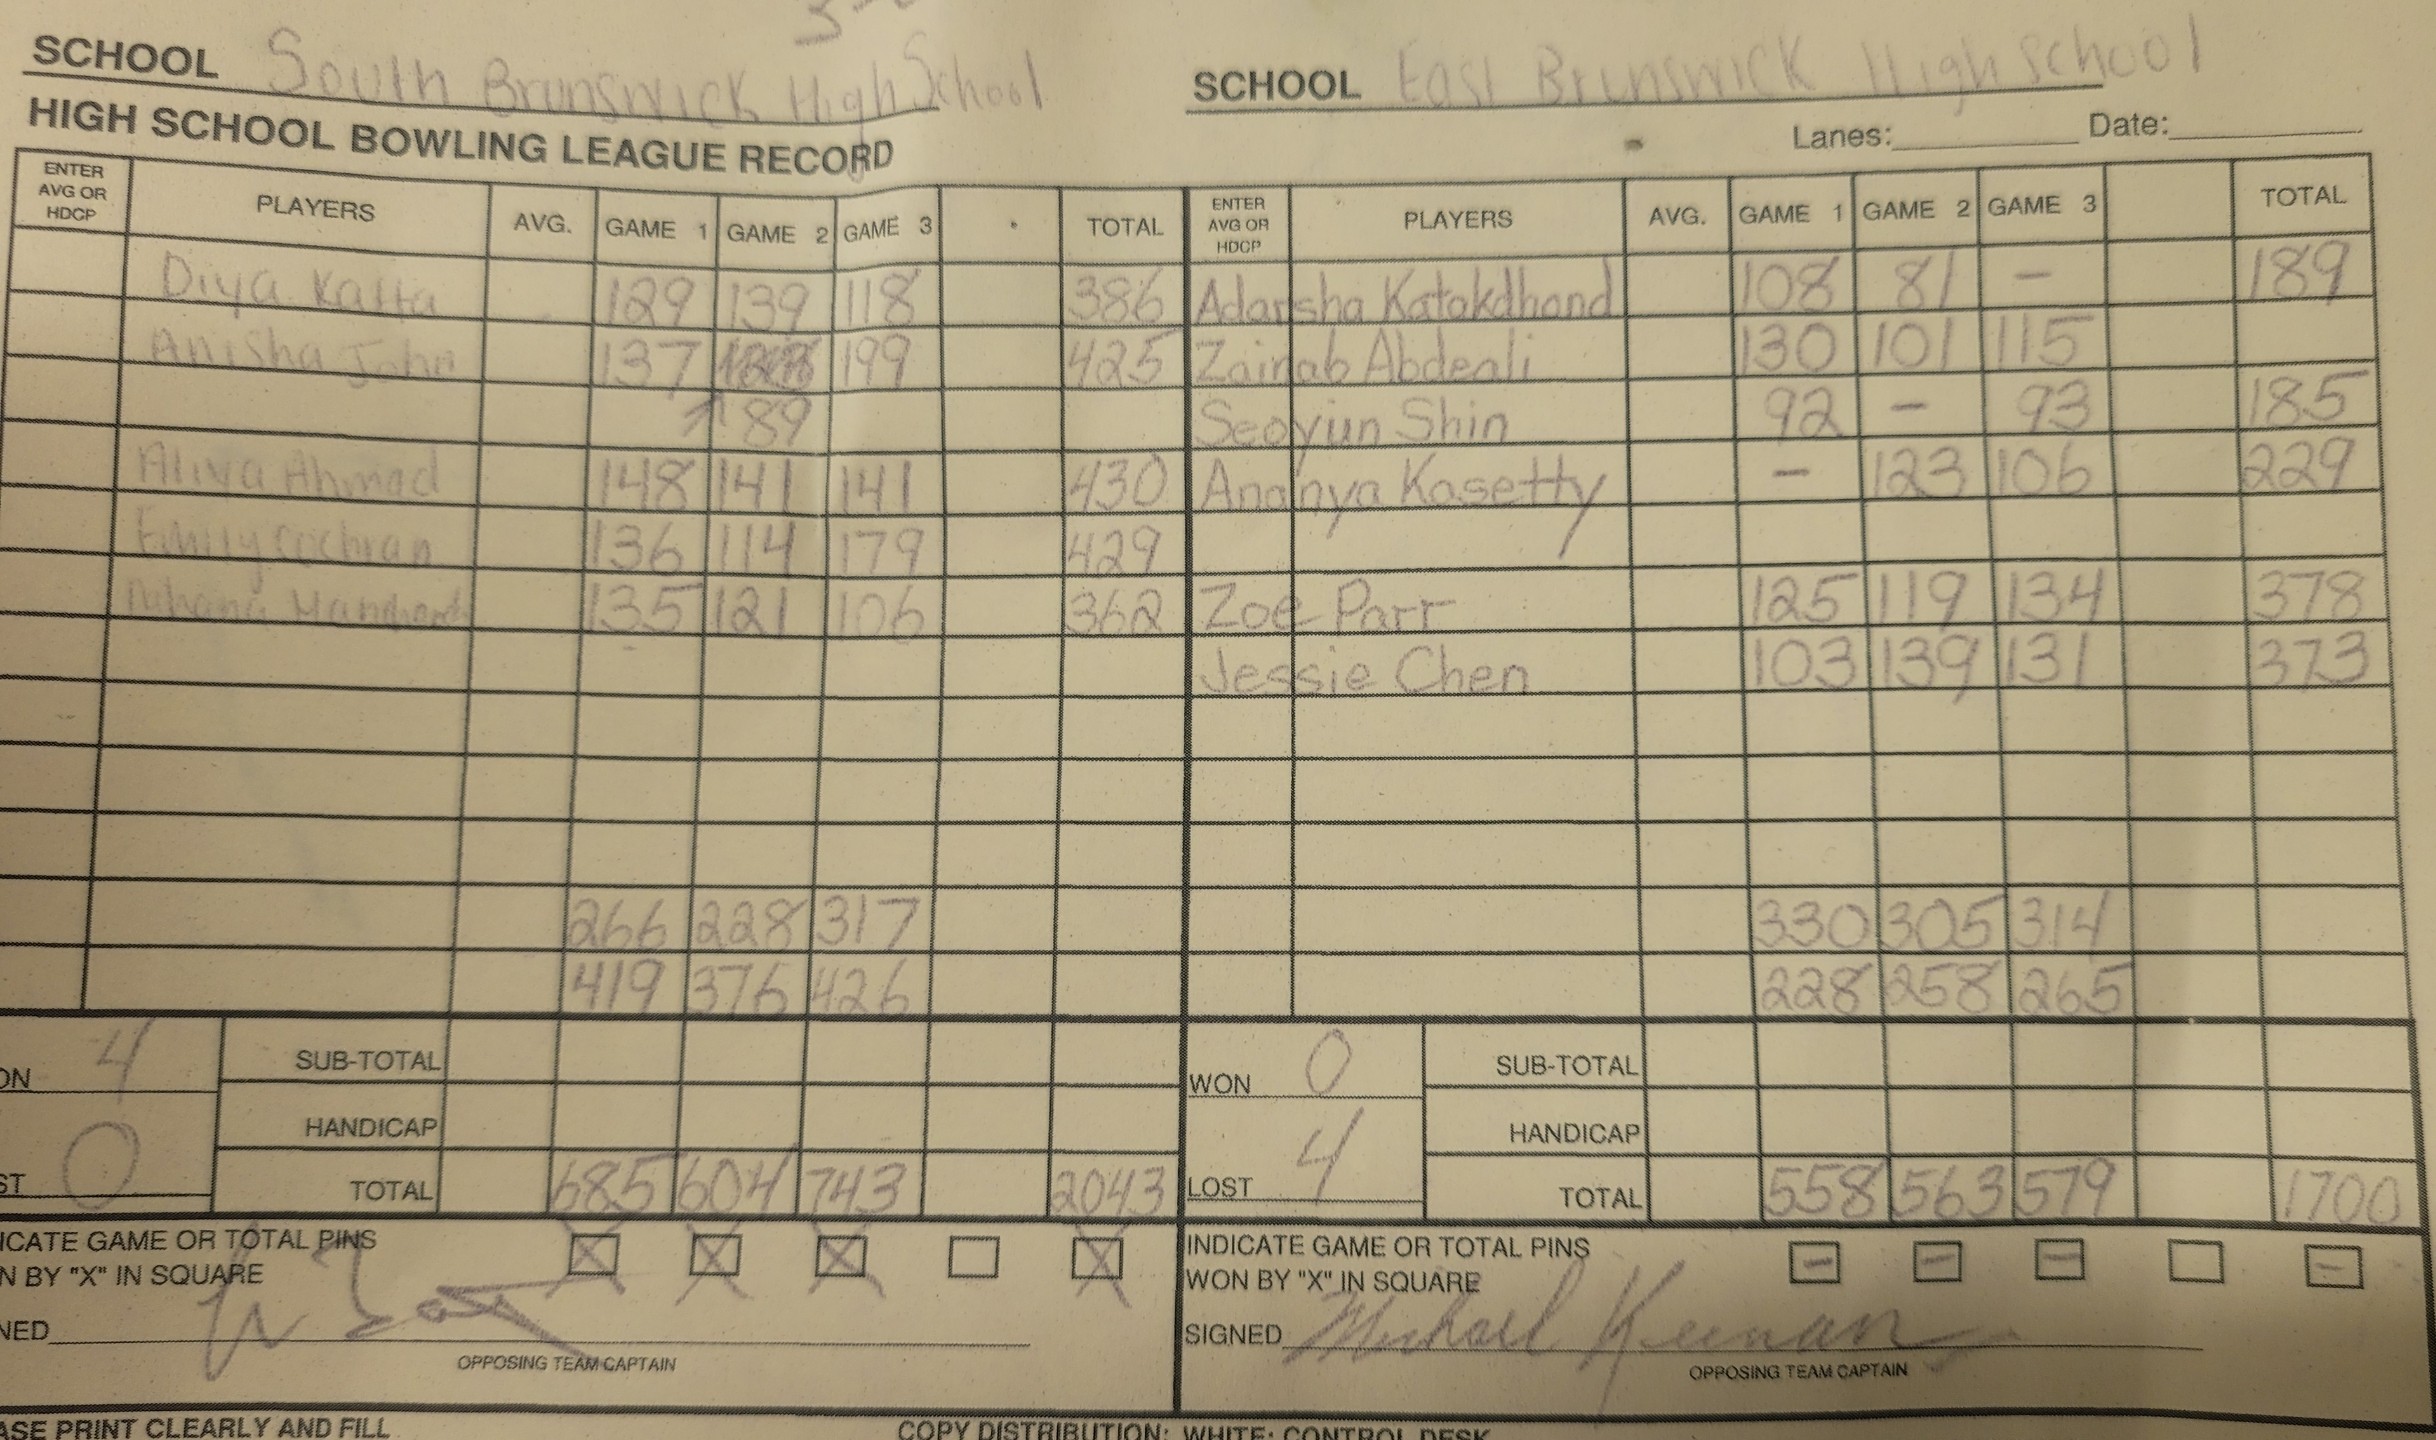 SCHOOL South Brunswick High School
SCHOOL East Brunswick High School
HIGH SCHOOL BOWLING LEAGUE RECORD
Lanes: Date:
ENTER AVG OR HDCP PLAYERS AVG. GAME 1 GAME 2 GAME 3 TOTAL ENTER AVG OR HDCP PLAYERS AVG. GAME 1 GAME 2 GAME 3 TOTAL
Diya Katta 129 139 118 386 Adarsha Katakdhond 108 81 - 189
Anisha John 137 199 425 Zainab Abdeali 130 101 115
89 Seoyun Shin 92 - 93 185
Aliya Ahmad 148 141 141 430 Ananya Kasetty - 123 106 229
Emily Cochran 136 114 179 429
135 121 106 362 Zoe Parr 125 119 134 378
Jessie Chen 103 139 131 373
266 228 317 330 305 314
419 376 426 228 258 265
ON 4 SUB-TOTAL WON 0 SUB-TOTAL
HANDICAP HANDICAP
ST 0 TOTAL 685 604 743 2043 LOST 4 TOTAL 558 563 579 1700
ICATE GAME OR TOTAL PINS X X X X INDICATE GAME OR TOTAL PINS - - - -
N BY "X" IN SQUARE WON BY "X" IN SQUARE
NED SIGNED Michael Keenan
OPPOSING TEAM CAPTAIN OPPOSING TEAM CAPTAIN
ASE PRINT CLEARLY AND FILL COPY DISTRIBUTION: WHITE: CONTROL DESK